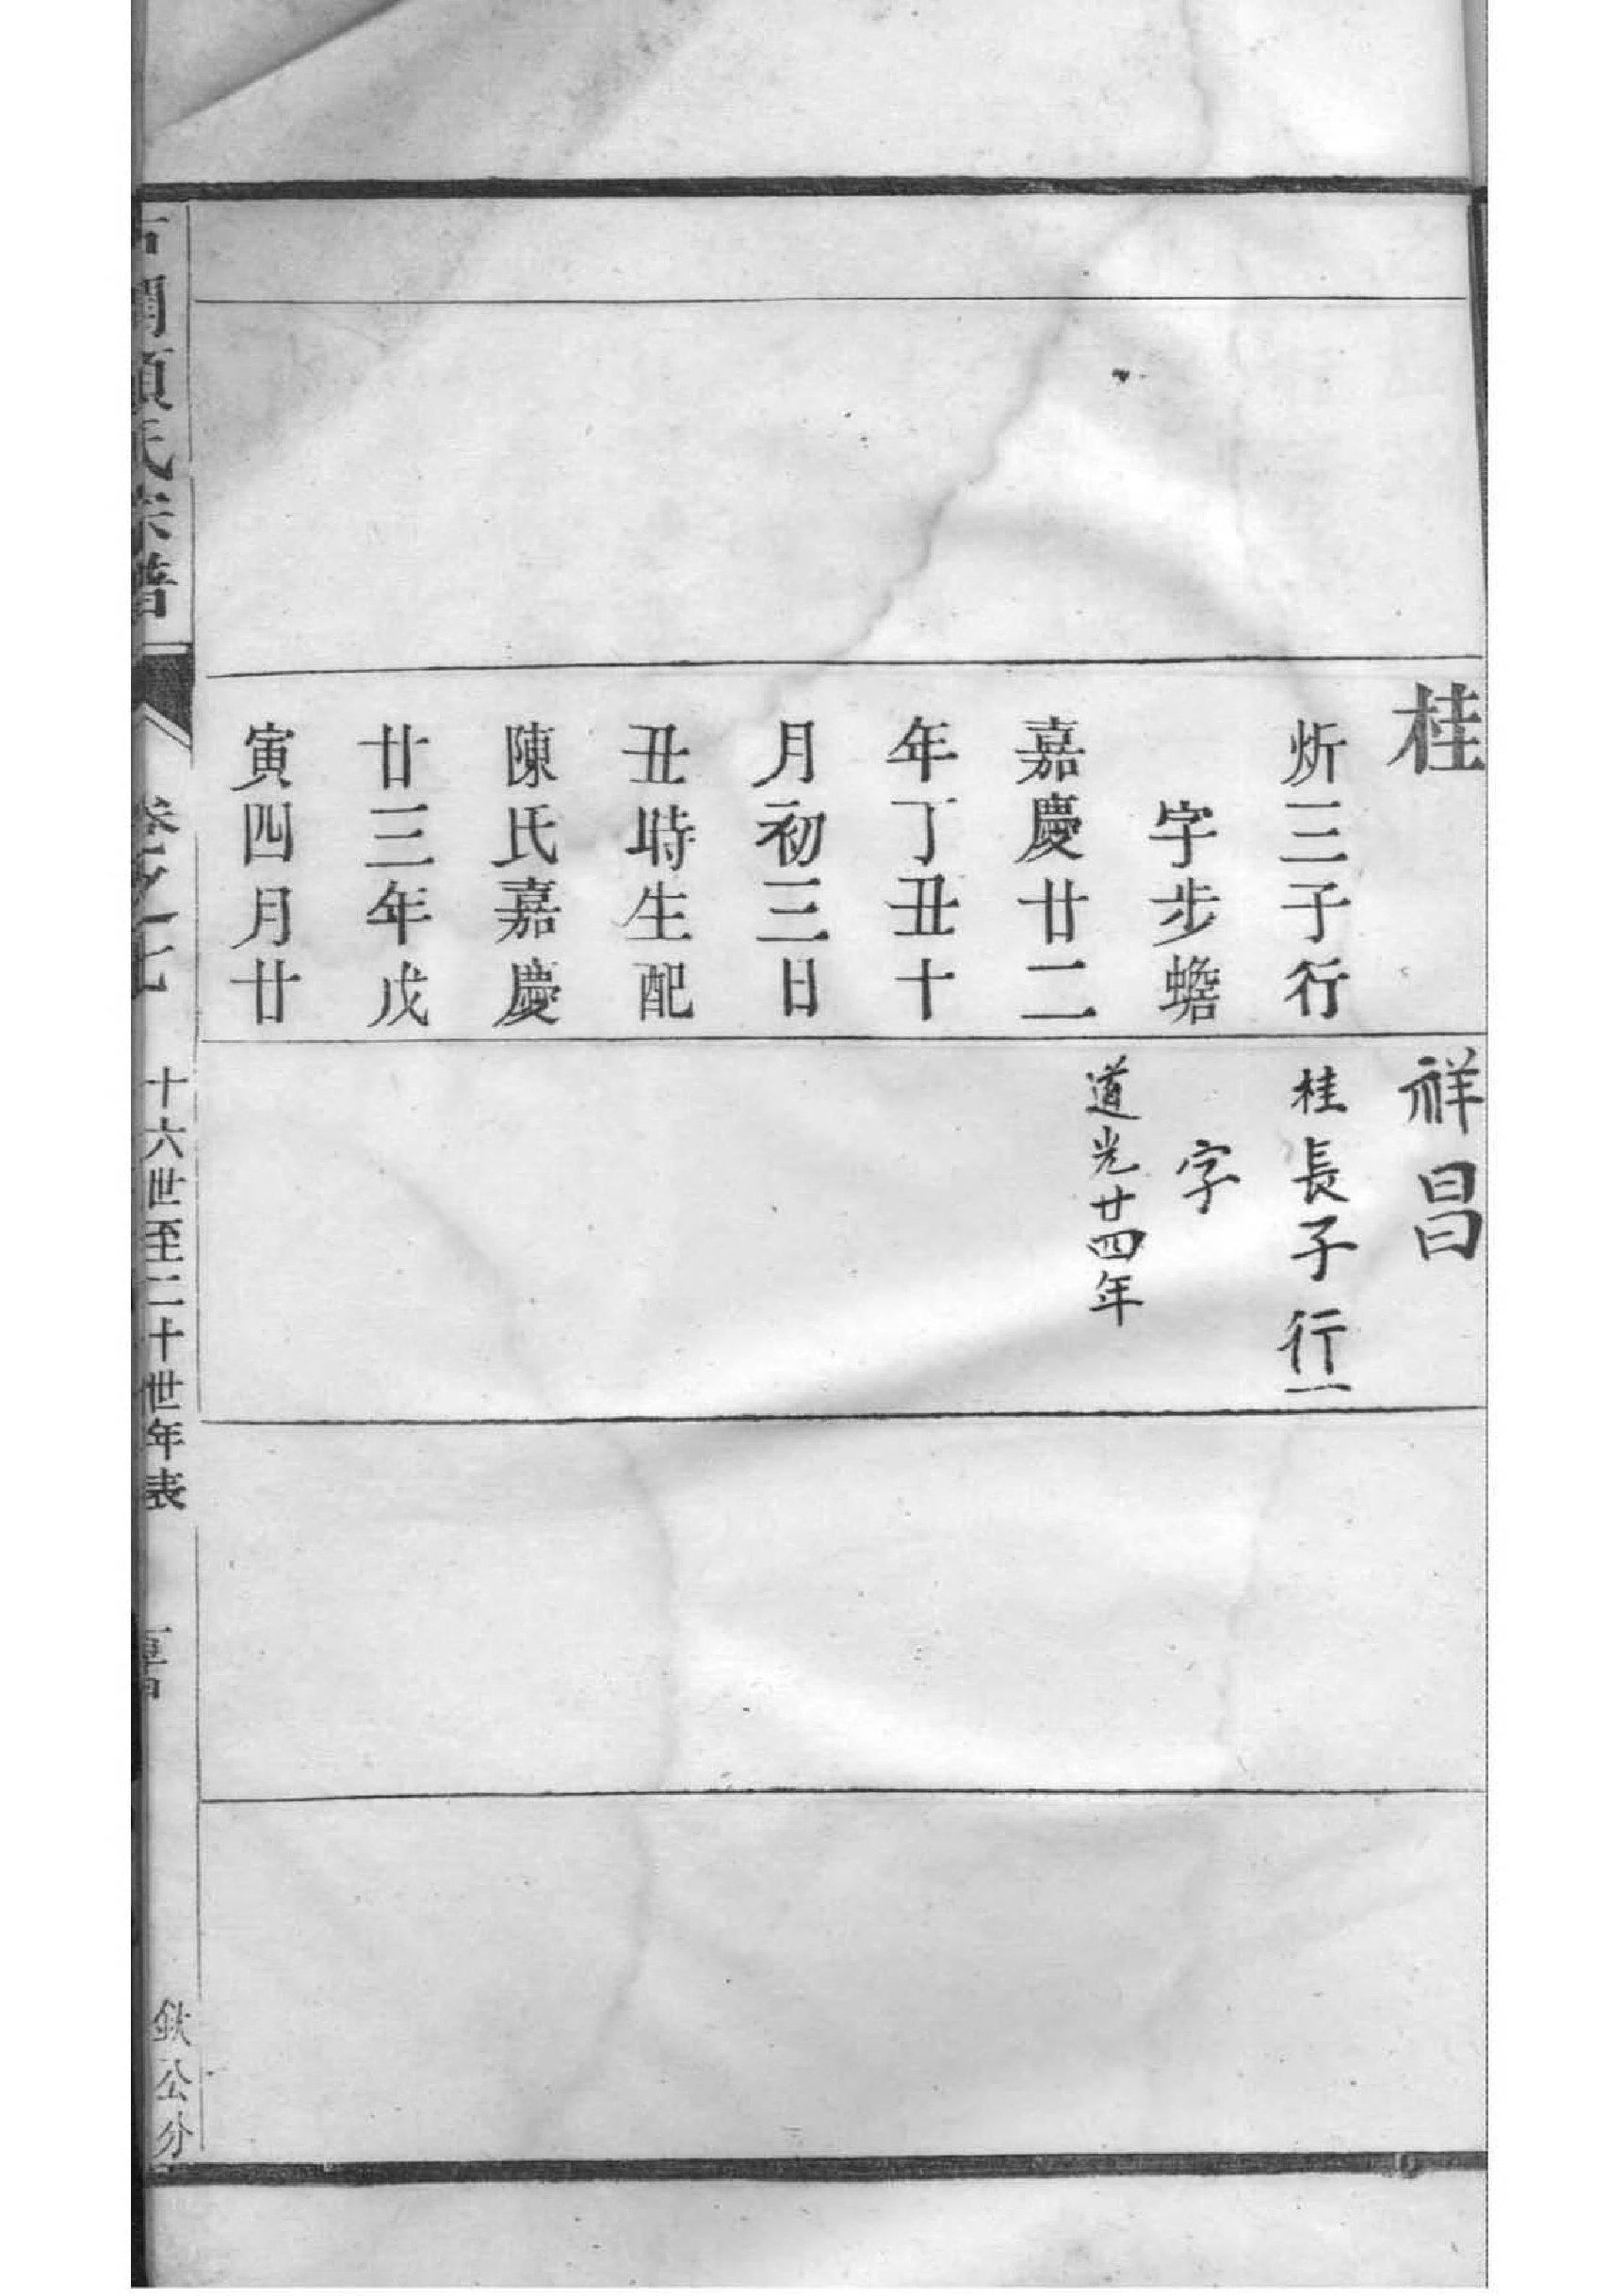 桂
炘三子行
字步蟾
嘉慶廿二
年丁丑十
月初三日
丑時生配
陳氏嘉慶
廿三年戊
寅四月廿
祥昌
桂長子行一
字
道光廿四年
氏宗譜
卷之十七
十六世至二十世年表
公分